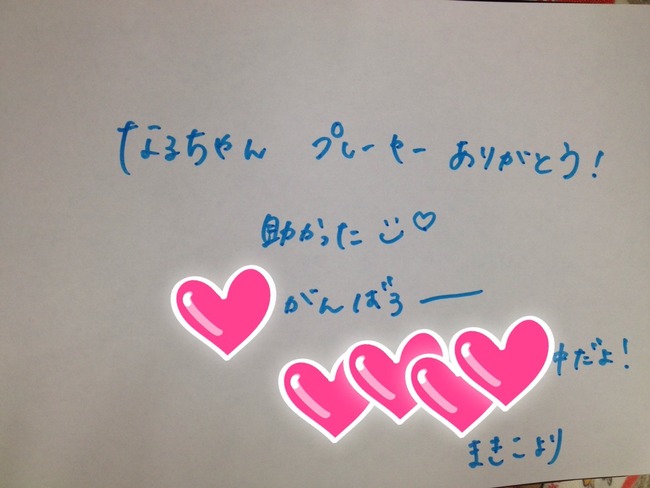 なるちゃん プレーヤー ありがとう!
助かった
がんばろー
中だよ!
まきこより